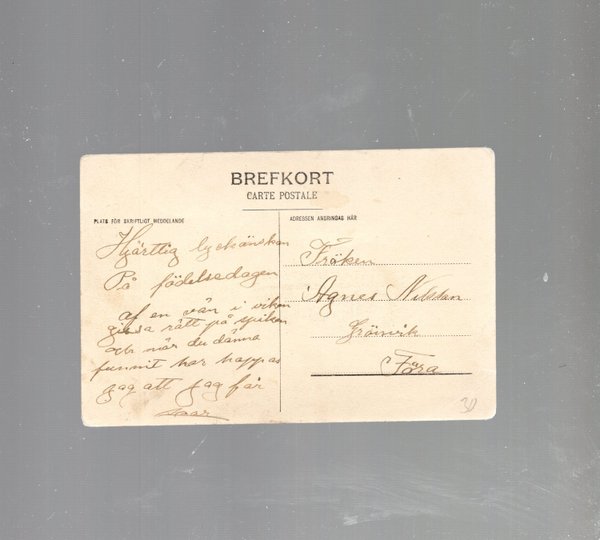 BREFKORT
CARTE POSTALE
PLATS FÖR SKRIFTLIGT MEDDELANDE
ADRESSEN ANBRINGAS HÄR
Hjärttig lyckönskan
På födelssdagen
af en vän i viken
gissa rätt på spiken
och när du dänna
funnit har hoppas
jag att jag får
svar
Fröken
Agnes Nilsson
Gröinvik
Fåra
30